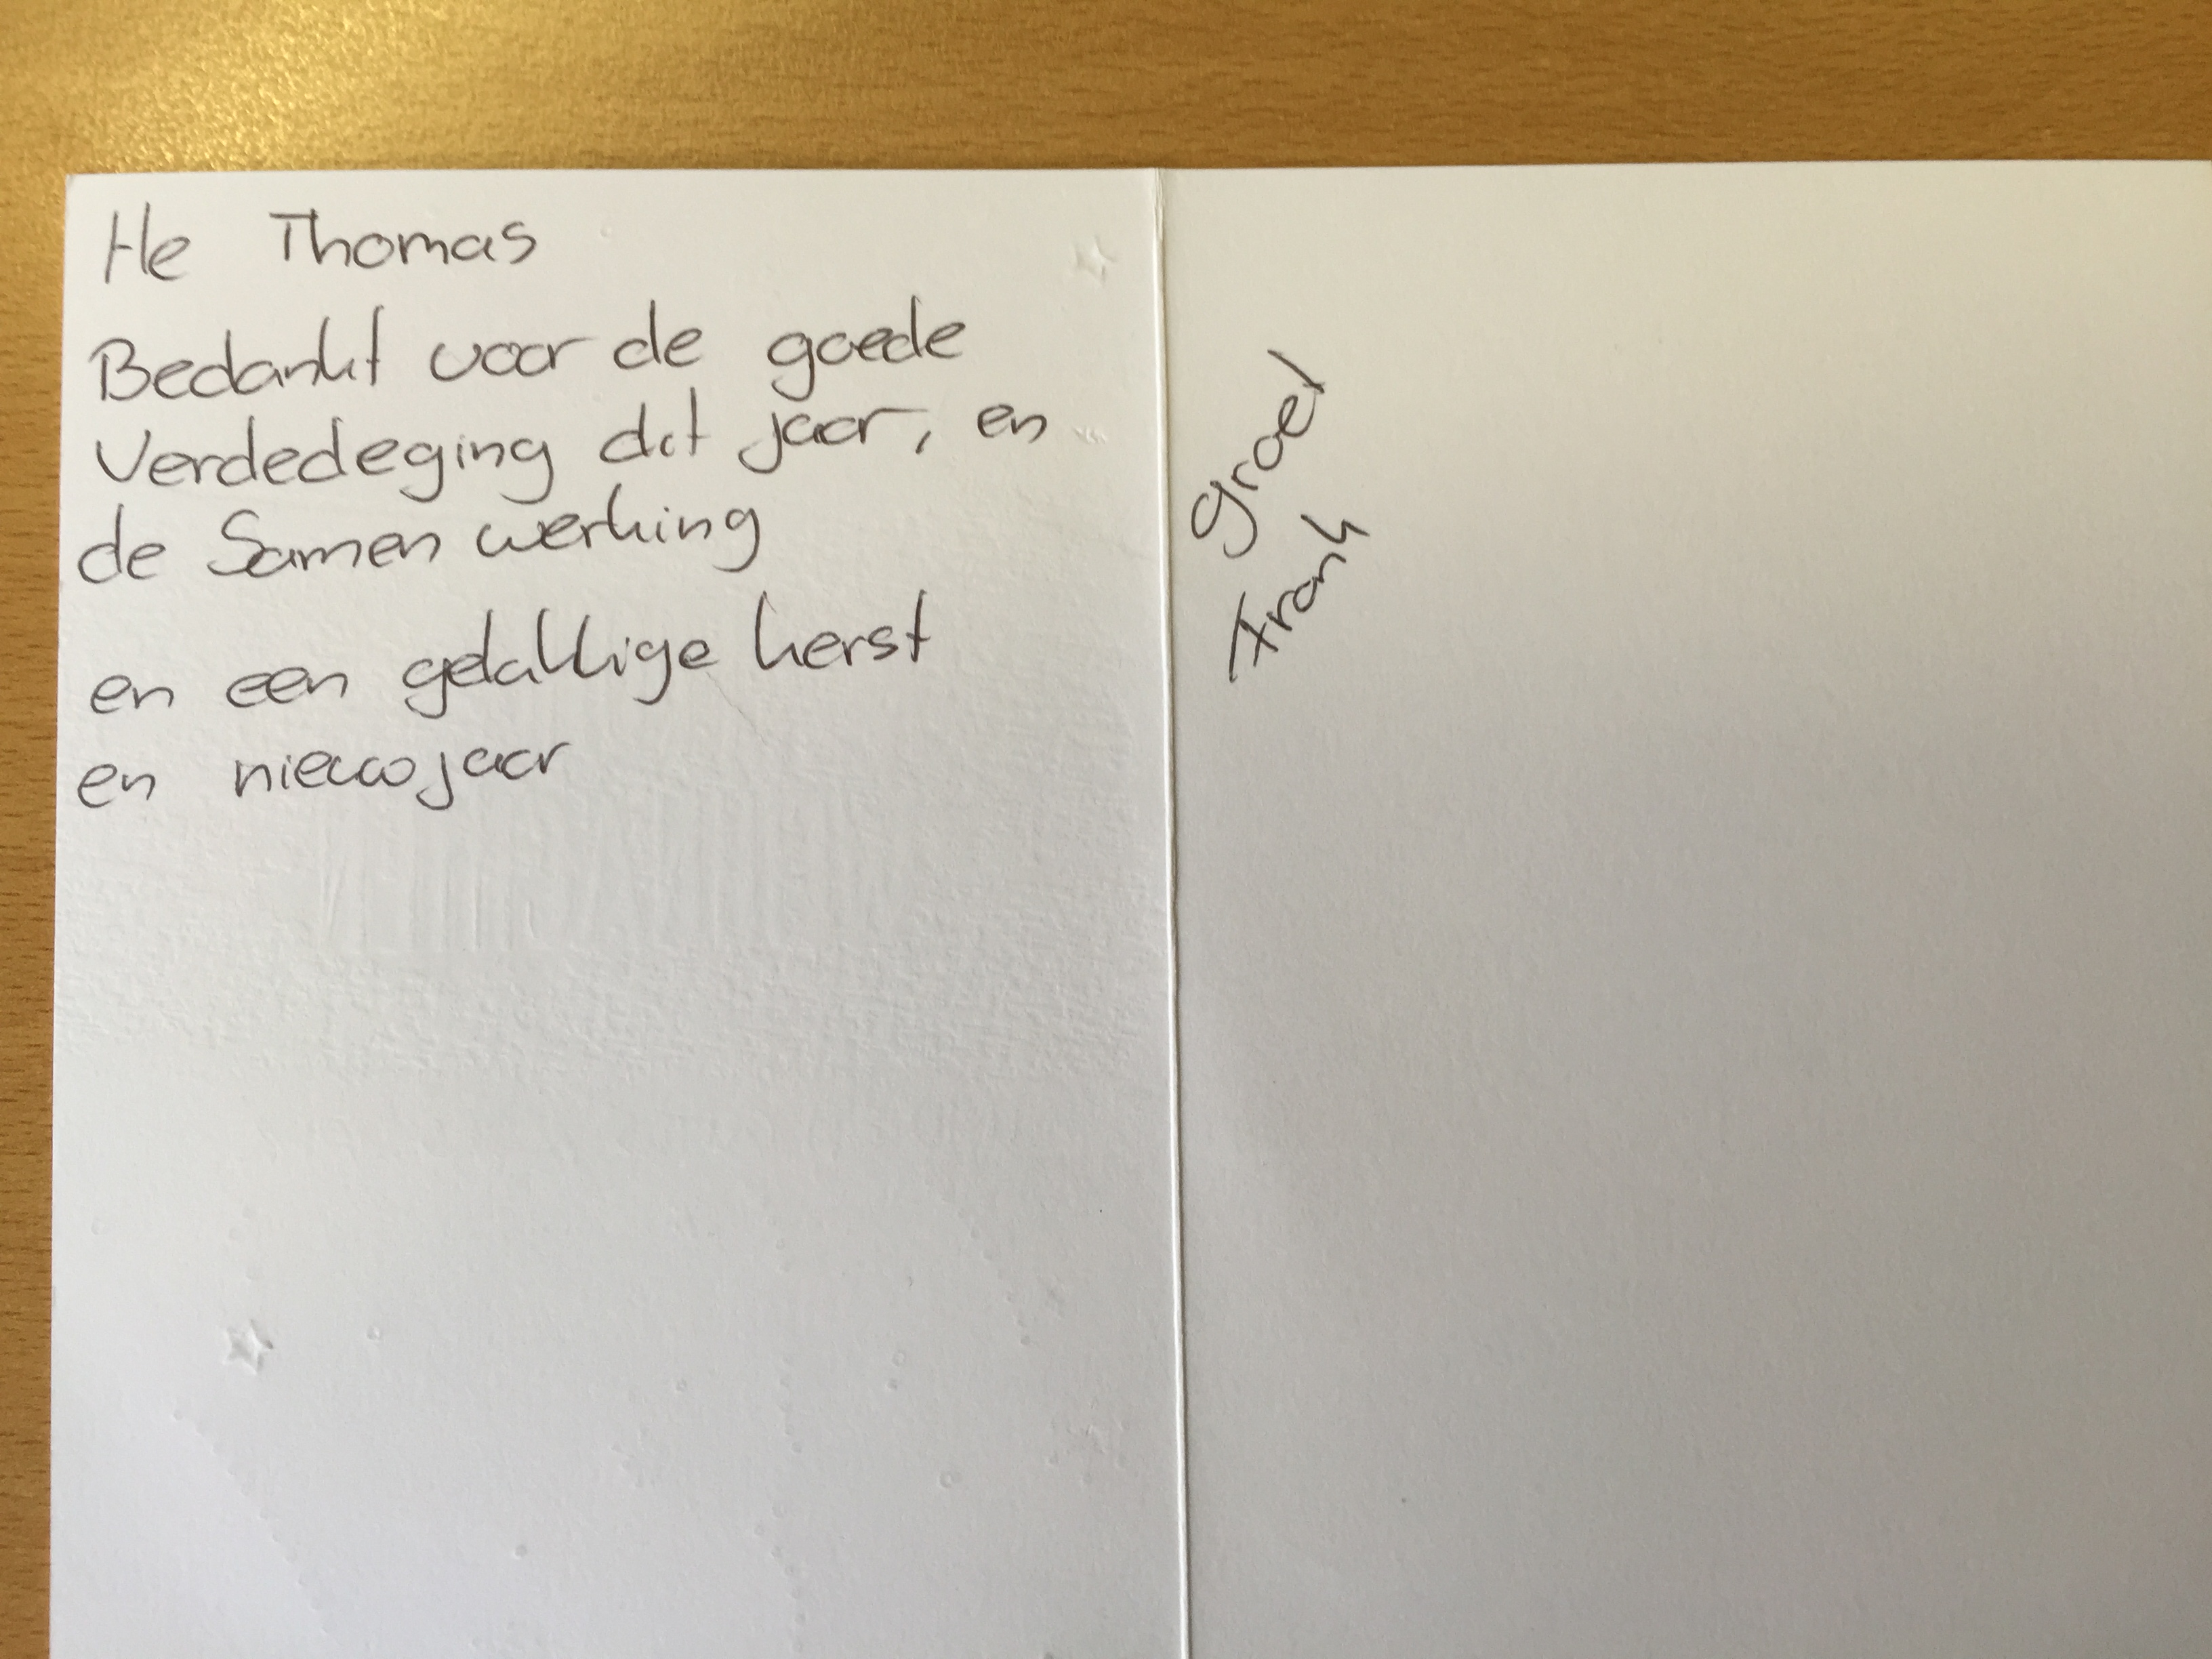 He Thomas
Bedankt voor de goede
Verdedeging dit jaar, en
de Samen werking
en een gelakkige kerst
en nieuwjaar
groet
Frank